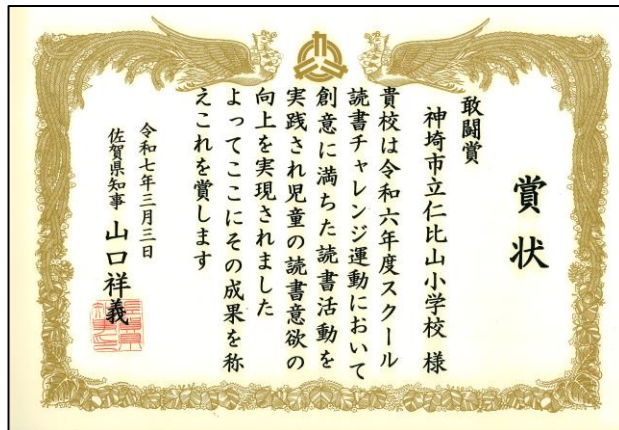 賞状
敢闘賞
神埼市立仁比山小学校 様
貴校は令和六年度スクール
読書チャレンジ運動において
創意に満ちた読書活動を
実践され児童の読書意欲の
向上を実現されました
よってここにその成果を称
えこれを賞します
令和七年三月三日
佐賀県知事 山口祥義